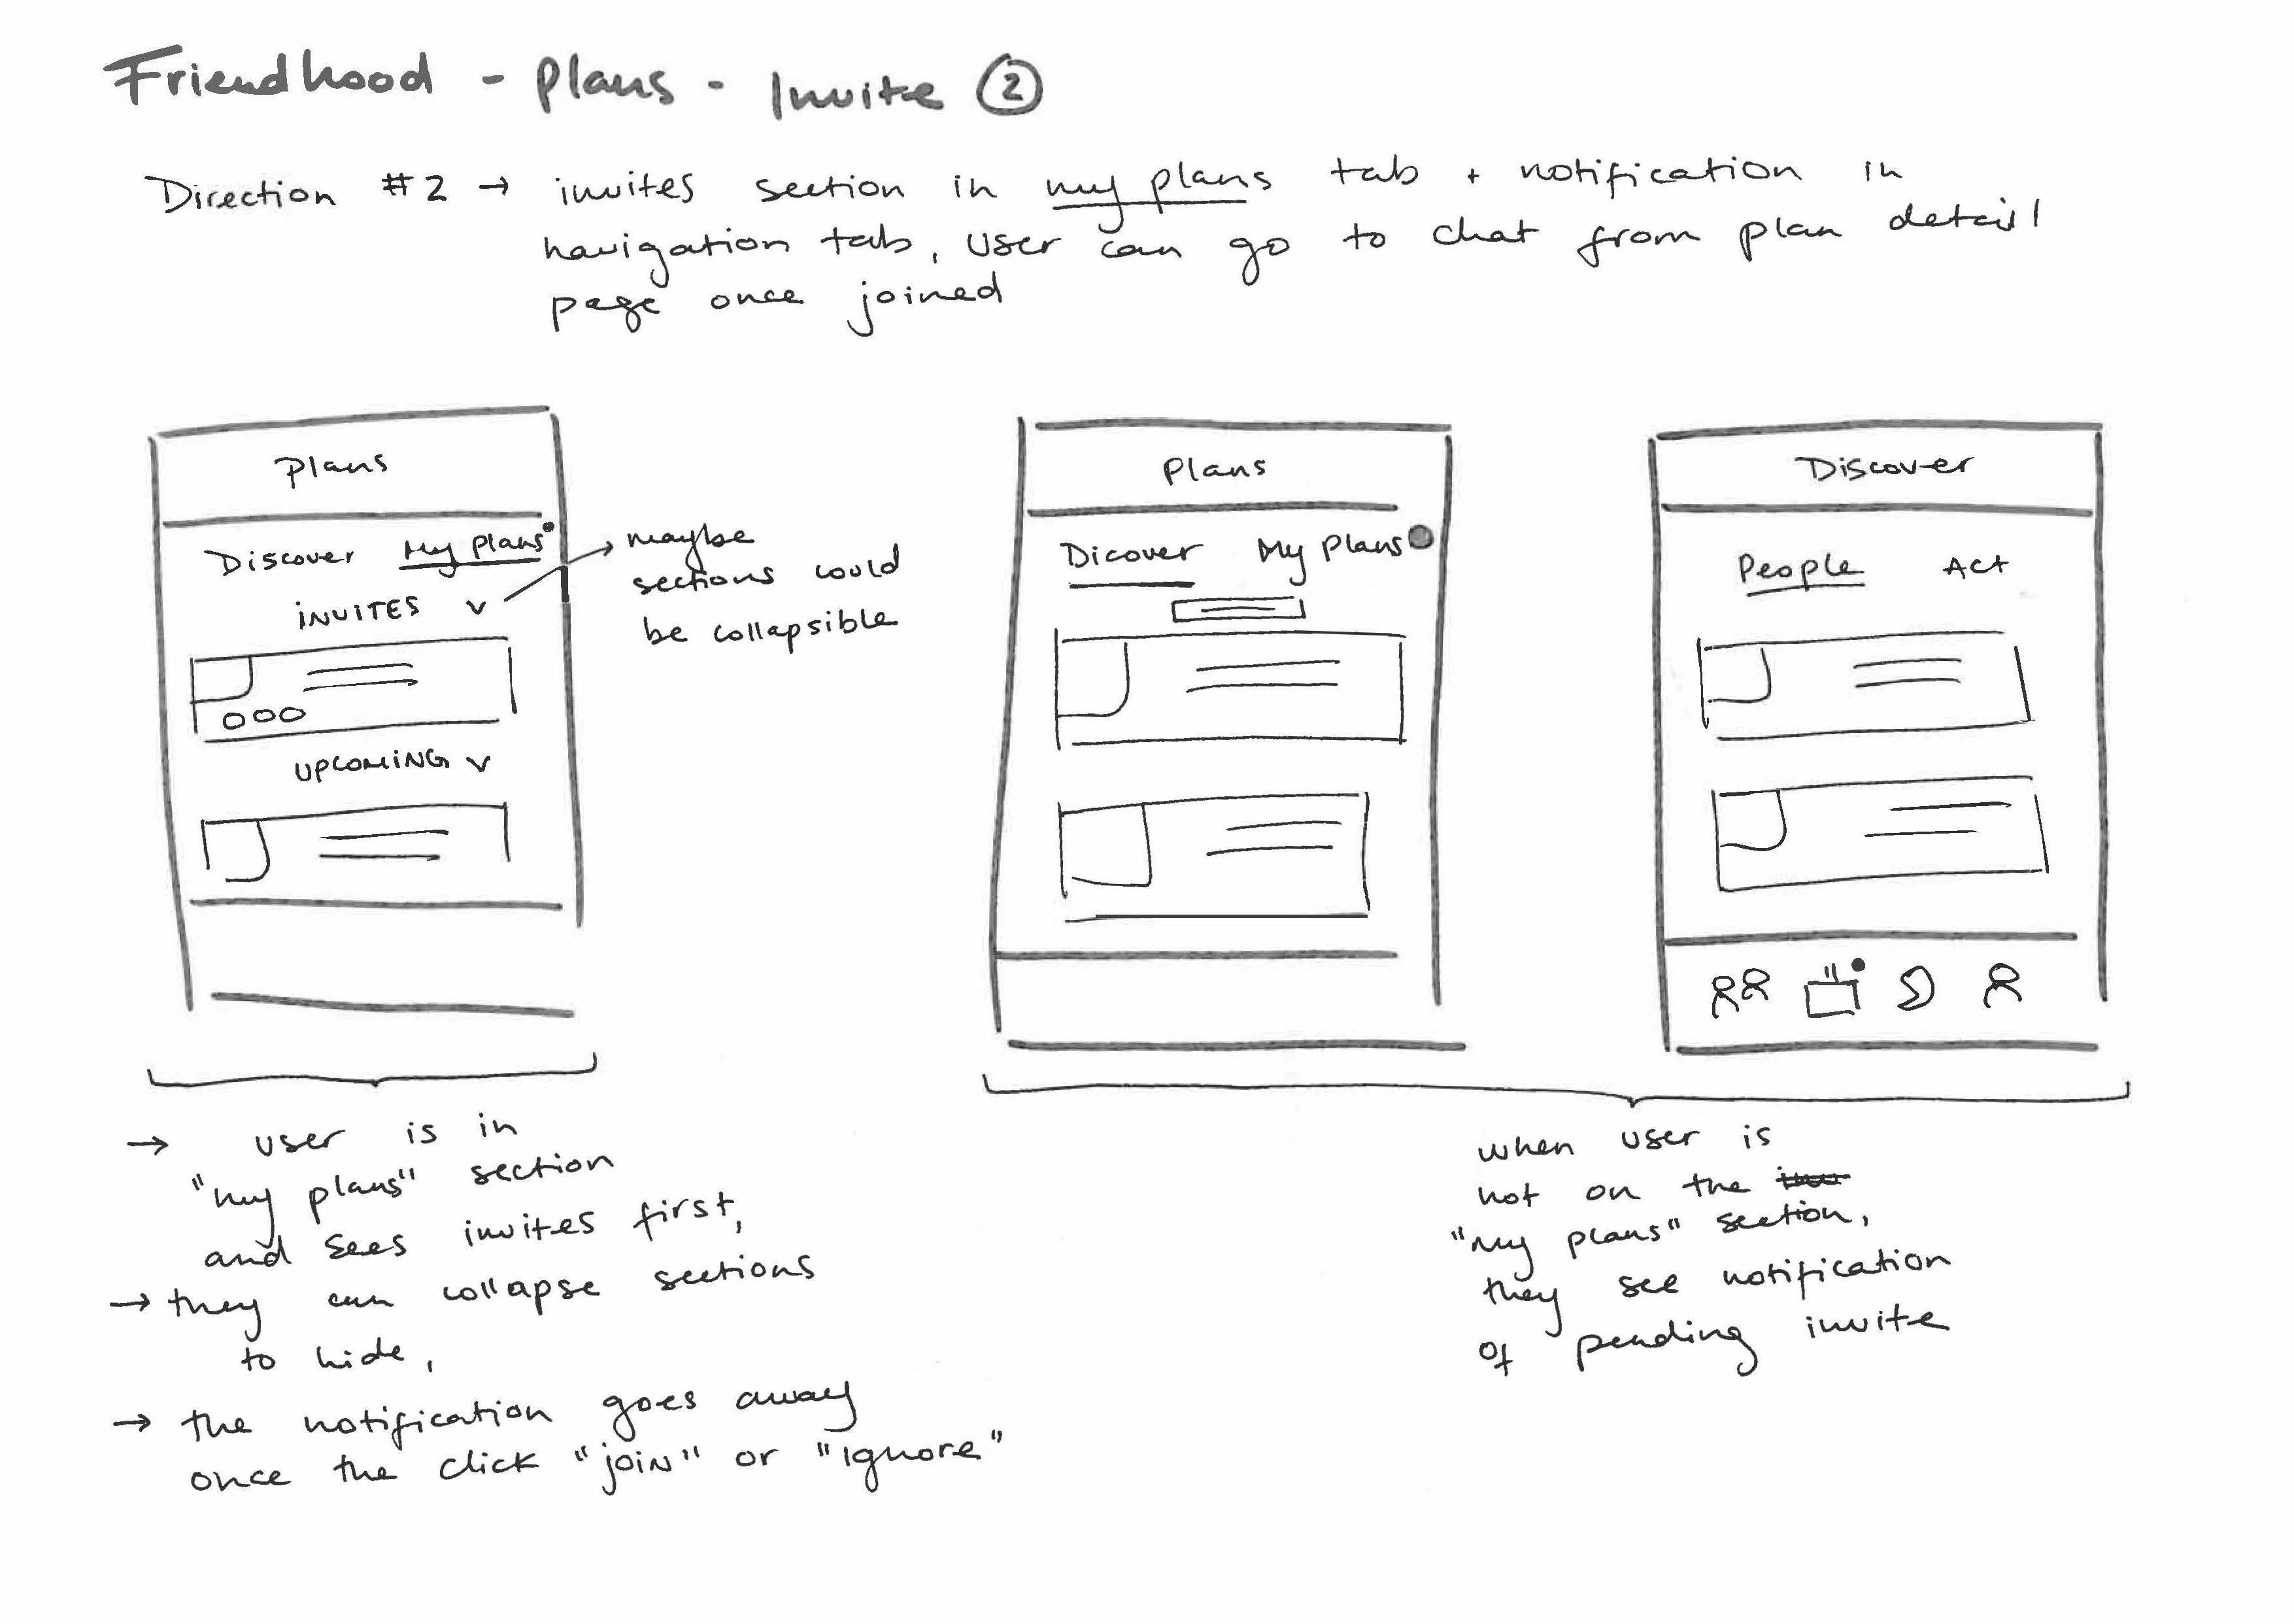 Friendhood - Plans - Invite 2
Direction #2 → invites section in my plans tab + notification in
navigation tab, user can go to chat from plan detail
page once joined
Plans
Discover My plans
INVITES v
UPCOMING v
→ maybe
sections could
be collapsible
Plans
Dicover My Plans
Discover
People Act
→ user is in
"my plans" section
and sees invites first,
→ they can collapse sections
to hide,
→ the notification goes away
once the click "join" or "ignore"
when user is
not on the
"my plans" section,
they see notification
of pending invite